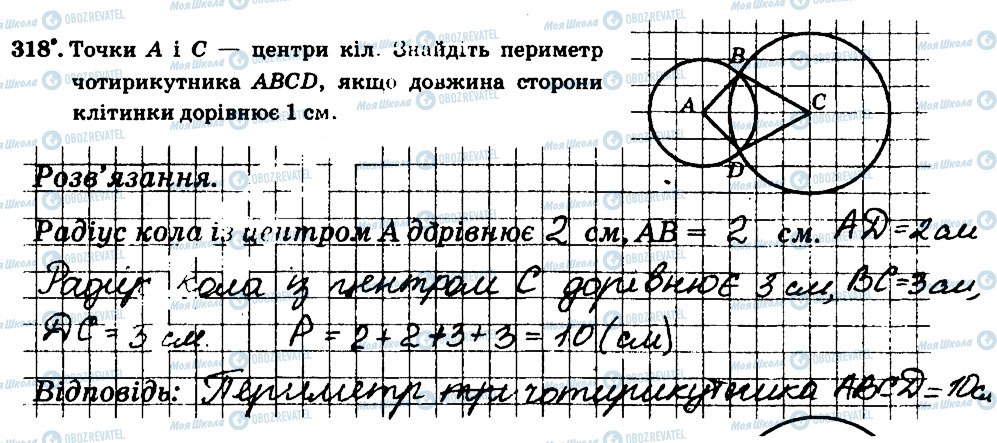 318°. Точки A і C — центри кіл. Знайдіть периметр
чотирикутника ABCD, якщо довжина сторони
клітинки дорівнює 1 см.
B
A
C
D
Розв'язання.
Радіус кола із центром A дорівнює 2 см, AB = 2 см. AD = 2 см
Радіус кола із центром C дорівнює 3 см, BC = 3 см,
DC = 3 см. P = 2 + 2 + 3 + 3 = 10 (см)
Відповідь: Периметр чотирикутника ABCD = 10 см